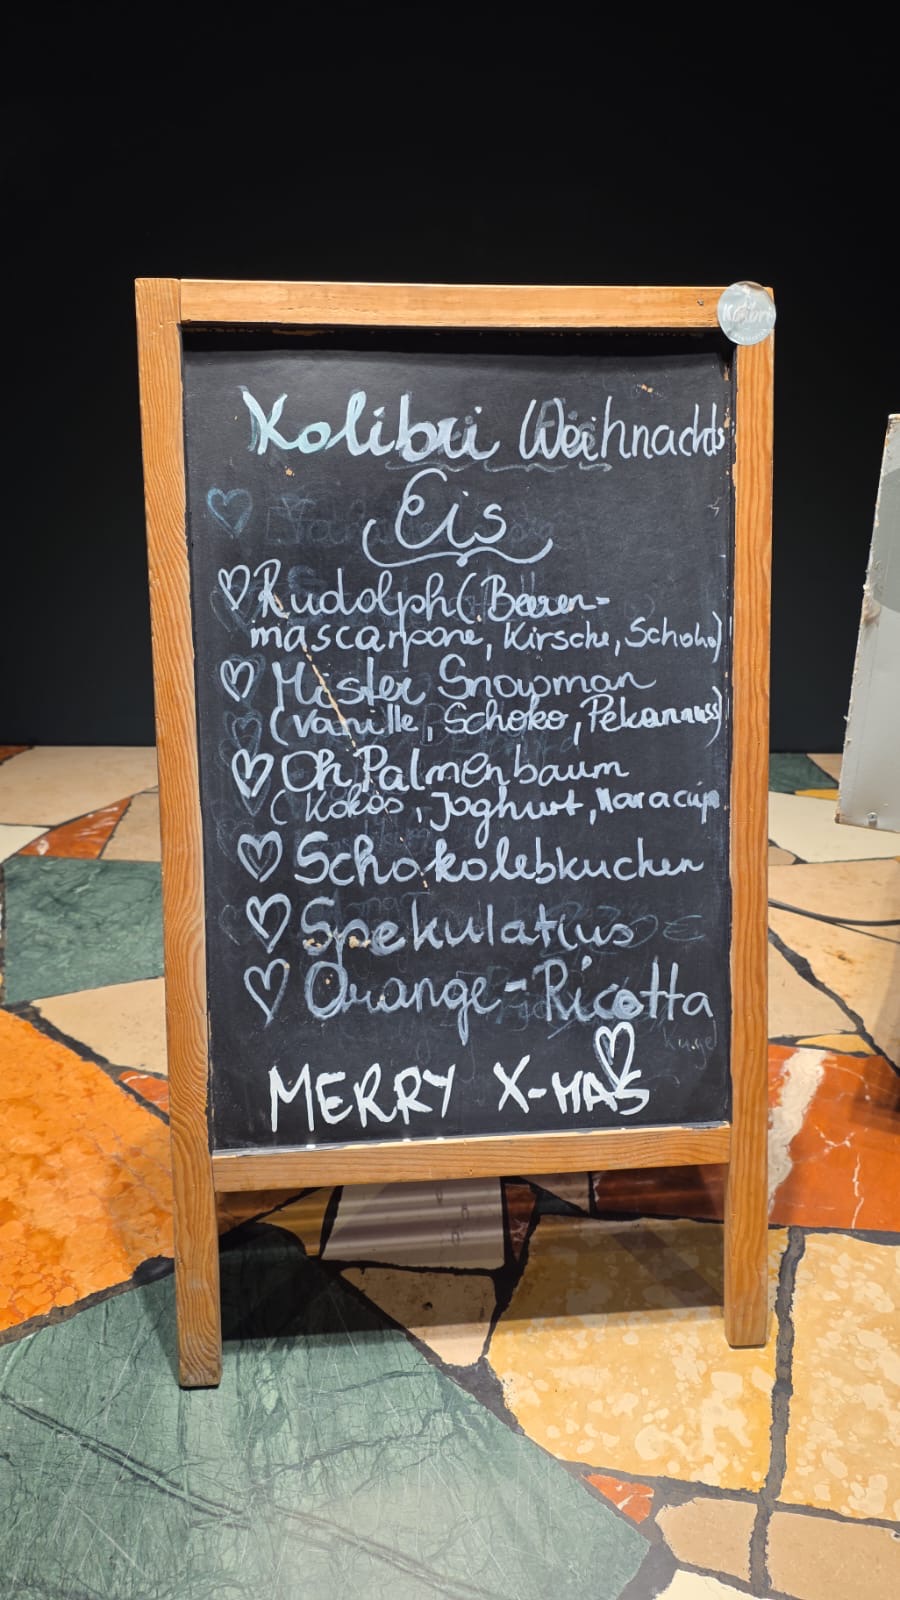 Kolibri
Kolibri Weihnachts
Eis
Rudolph (Beeren-
mascarpone, Kirsche, Schoko)
Mister Snowman
(Vanille, Schoko, Pekannuss)
Oh Palmenbaum
(Kokos, Joghurt, Maracuja
Schokolebkuchen
Spekulatius
Orange-Ricotta
Kugel
MERRY X-MAS